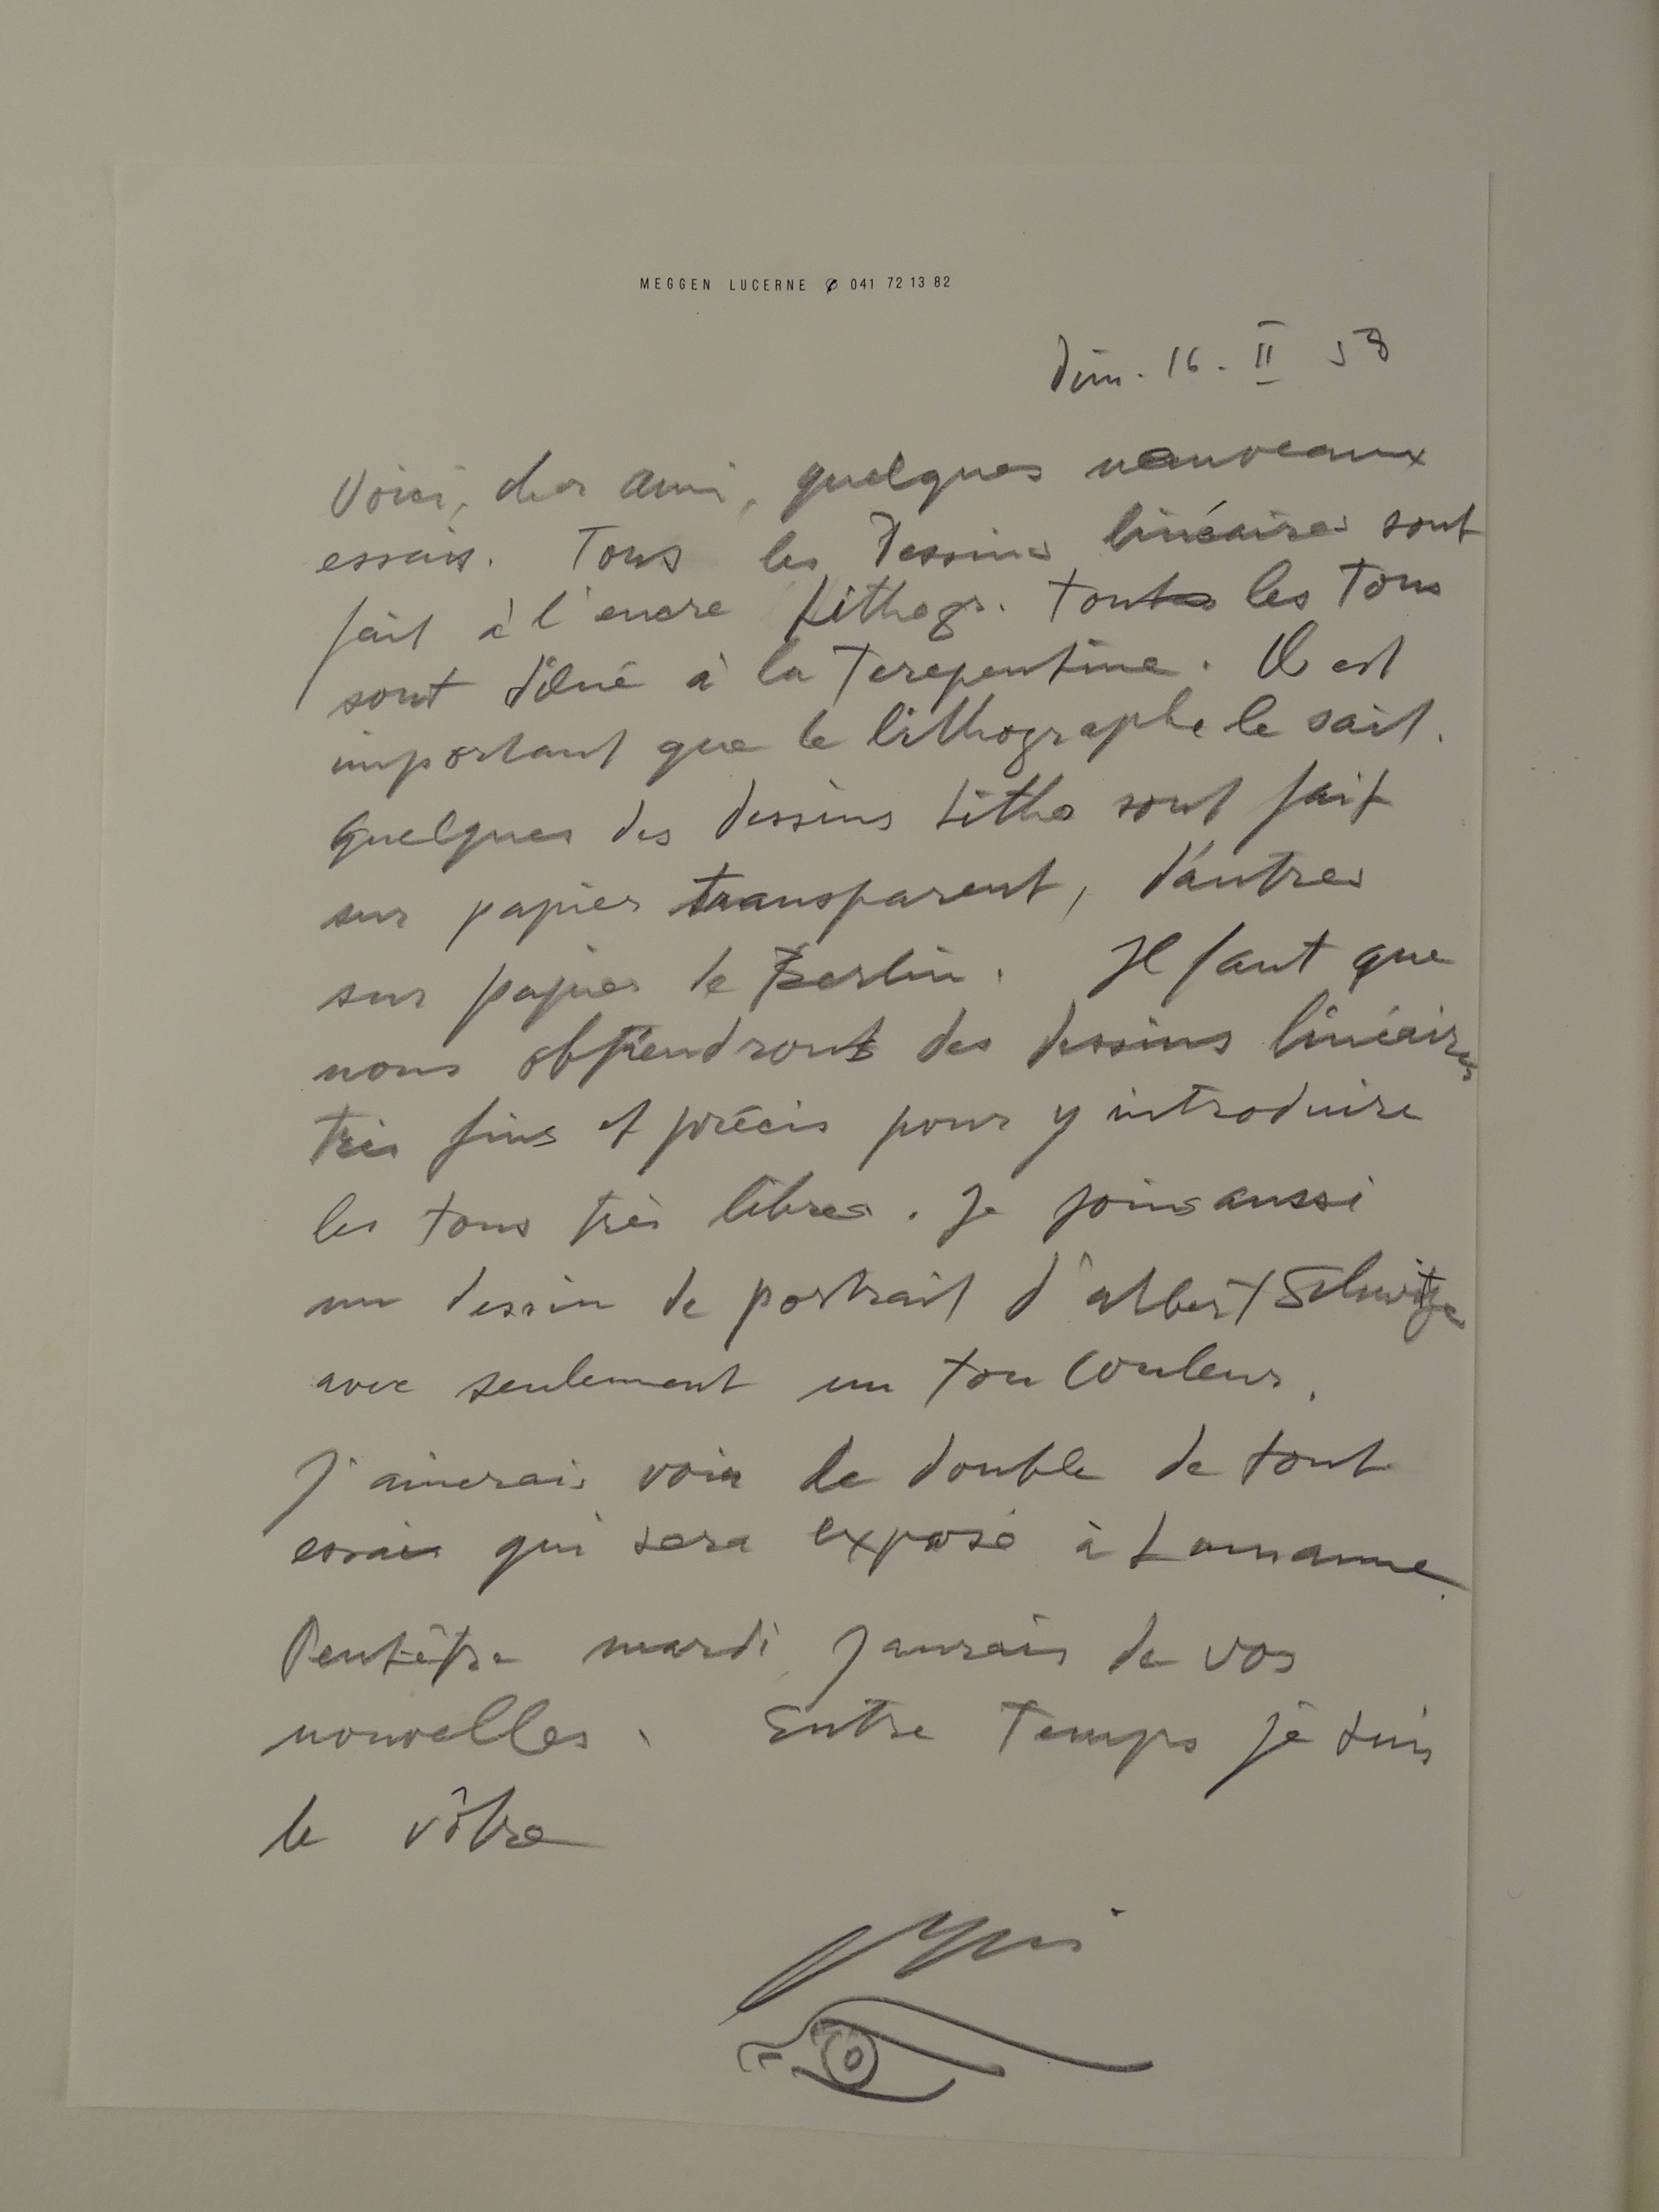 MEGGEN LUCERNE 041 72 13 82
dim. 16. II 58
Voici, cher ami, quelques nouveaux
essais. Tous les dessins linéaires sont
fait à l'encre Lithogr. toutes les tons
sont dilué à la Terepentine. Il est
important que le lithographe le sait.
quelques des dessins Litho sont fait
sur papier transparent, d'autres
sur papier de Berlin. Il faut que
nous obtiendront des dessins linéaires
très fins et précis pour y introduire
les tons très libres. Je joins aussi
un dessin de portrait d'Albert
avec seulement un ton couleur.
J'aimerais voir le double de tout
essais qui sera exposé à Lausanne.
Peut-être mardi j'aurais de vos
nouvelles. Entre Temps je suis
le vôtre